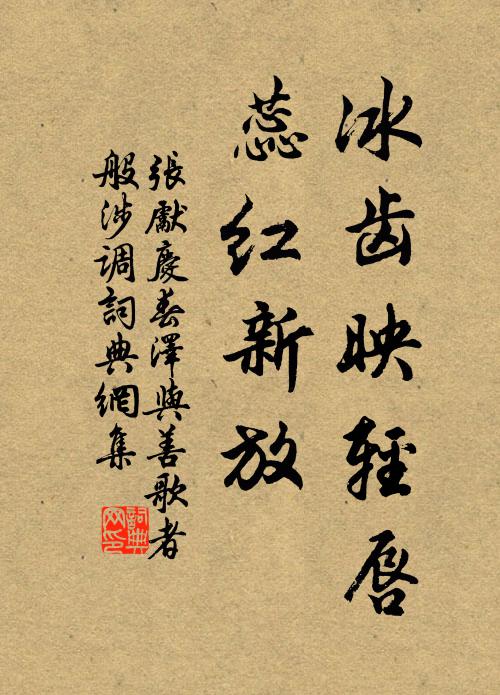 冰齿映轻唇
蕊红新放
張獻慶春澤與善歌者
般涉调詞典網集
詞典網印